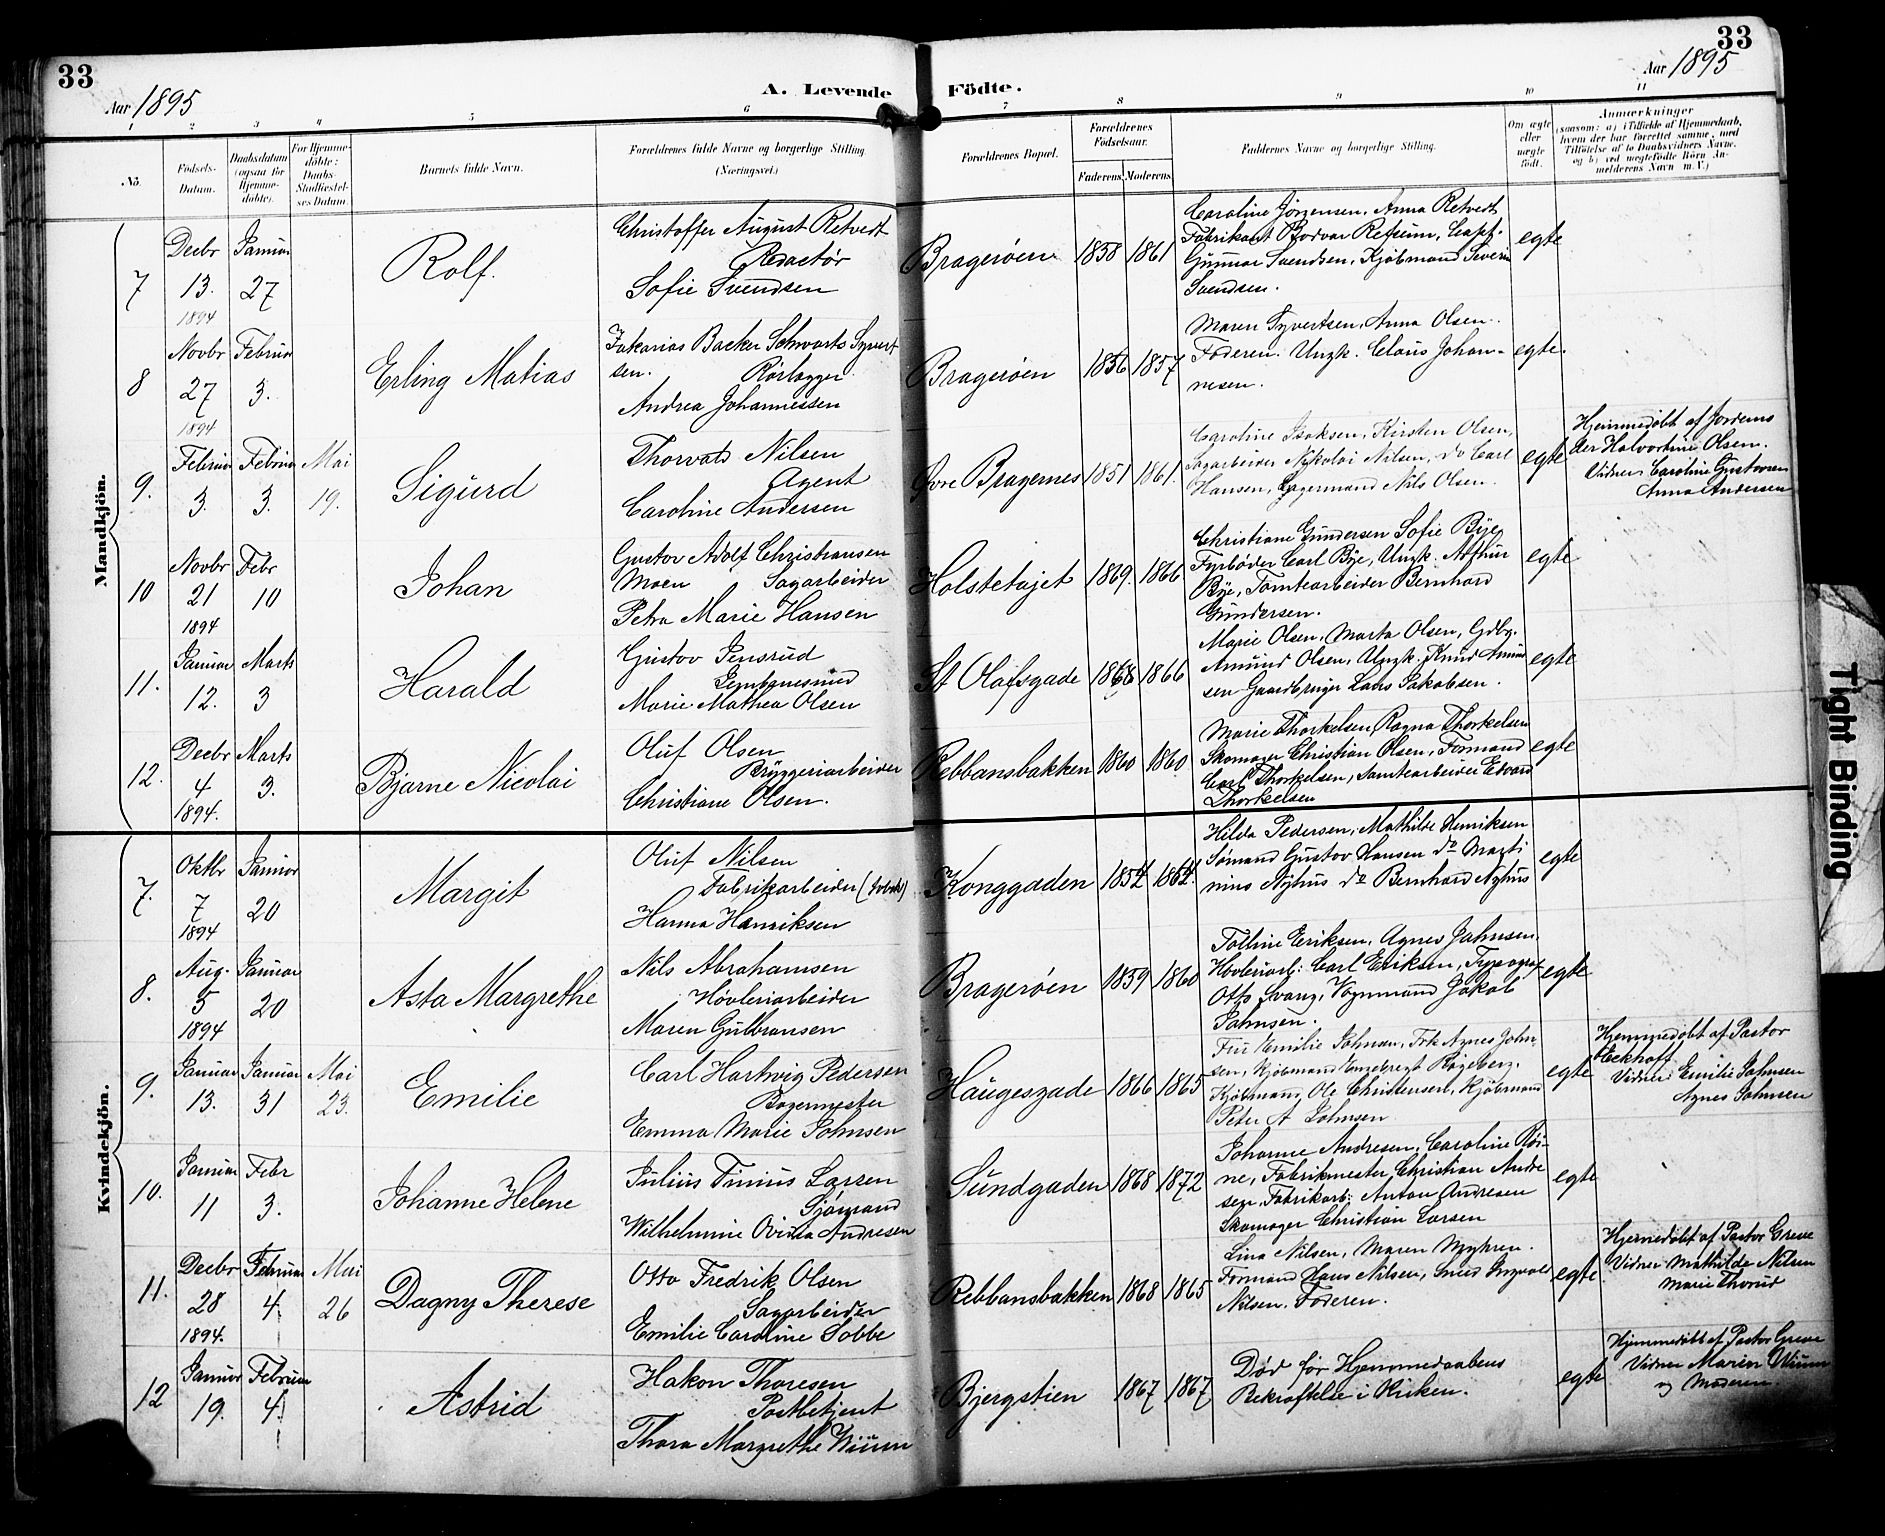 33
33
Aar 1895
A. Levende Födte.
Aar 1895
1 2 3 4 5 6 7 8 9 10 11
No.
Födsels-Datum.
Daabsdatum (ogsaa for Hjemmedöbte).
For Hjemmedöbte: Daabs-Stadfæstelses Datum.
Barnets fulde Navn.
Forældrenes fulde Navne og borgerlige Stilling. (Næringsvei.)
Forældrenes Bopæl.
Forældrenes Födselsaar.
Faderens. Moderens.
Faddernes Navne og borgerlige Stilling.
Om ægte eller uægte födt.
Anmærkninger
(saasom: a) i Tilfælde af Hjemmedaab, hvem der har forrettet samme, med Tilföielse af to Daabsvidners Navne, og b) ved uægtefödte Börn Anmelderens Navn m. V.)
Mandkjön.
7
Decbr 13. 1894
Januar 27
Rolf.
Christoffer August Retvedt
Redactør
Sofie Svendsen
Bragerøen
1858 1861
Caroline Jørgensen, Anna Retvedt
Fabrikant Bodvar Refsum, Capt.
Gunnar Svendsen, Kjøbmand Severin
Svendsen.
egte
8
Novbr 27 1894
Februar 3.
Erling Matias
Zakarias Backer Schwartz Syvert
sen. Rørlægger
Andrea Johannessen
Bragerøen
1856 1857
Maren Syvertsen, Anna Olsen.
Faderen. Ungk. Claus Johan-
nesen.
egte.
9.
Februar 3.
Februar 3.
Mai 19.
Sigurd
Thorvald Nilsen
Agent
Caroline Andersen
Øvre Bragernes
1851 1861.
Caroline Isaksen, Kirsten Olsen,
Sagarbeider Nykolai Nilsen, do Carl
Hansen, Lagermand Nils Olsen.
egte
Hjemmedøbt af Jordemo
der Halvordine Olsen.
Vidner Caroline Gustavsen
Anna Andersen
10
Novbr 21 1894
Febr 10
Johan
Gustav Adolf Christiansen
Moen Sagarbeider
Petra Marie Hansen
Holstetajet
1869. 1866
Christiane Gundersen Sofie Bye,
Fyrbøder Carl Bye, Ungk. Arthur
Bye, Tomtearbeider Bernhard
Gundersen.
egte
11.
Januar 12.
Marts 3
Harald
Gustav Jensrud
Jernbanesmed
Marie Mathea Olsen
St Olafsgade
1868 1866
Marie Olsen, Marta Olsen, Gdbg.
Amund Olsen, Ungk. Knud Amund
sen Gaardbruger Lars Jakobsen.
egte
12.
Decbr 4 1894.
Marts 3.
Bjarne Nicolai
Oluf Olsen
Bryggeriarbeider
Christiane Olsen.
Rebbansbakken
1860 1860
Marie Thorkelsen Ragna Thorkelsen
Skomager Christian Olsen, Formand
Carl Thorkelsen, Tomtearbeider Edvard
Thorkelsen
egte
Kvindekjön.
7.
Oktbr 7 1894
Januar 20
Margit
Oluf Nilsen
Fabrikarbeider
Hanna Henriksen
Konggaden
1854 1864.
Hilda Pedersen, Mathilde Henriksen
Sømand Gustav Hansen do Marti
nius Nyhus do Bernhard Nyhus
egte
8.
Aug. 5 1894
Januar 20
Asta Margrethe
Nils Abrahamsen
Høvleriarbeider
Maren Gulbransen
Bragerøen
1859 1860
Toline Eriksen, Agnes Johnsen,
Høvleriarb: Carl Eriksen, Typograf
Otto Svang, Vognmand Jakob
Johnsen.
egte
9.
Januar 13.
Januar 31
Mai 23.
Emilie
Carl Hartvig Pedersen
Bagermester
Emma Marie Johnsen
Haugesgade
1866 1865
Fru Emilie Johnsen, Frk Agnes John-
sen, Kjøbmand Engebregt Bøgeberg,
Kjøbmand Ole Christensen, Kjøbmand
Peter A Johnsen
egte
Hjemmedøbt af Pastor
Eckhoff
Vidner Emilie Johnsen
Agnes Johnsen
10.
Januar 11
Febr 3.
Johanne Helene
Julius Tinius Larsen
Sjømand
Wilhelmine Ovidia Andresen
Sundgaden
1868 1872
Johanne Andresen, Caroline Røi-
ne, Fabrikmester Christian Andre
sen Fabrikarb: Anton Andresen
Skomager Christian Larsen
egte
11.
Decbr 28 1894.
Februar 4.
Mai 26
Dagny Therese
Otto Fredrik Olsen
Sagarbeider
Emilie Caroline Lobbe
Rebbansbakken
1868 1865
Lina Nilsen, Maren Myhren.
Formand Hans Nilsen, Smed Ingvald
Nilsen. Faderen.
egte
Hjemedøbt af Pastor Greve
Vidner Mathilde Nilsen
Marie Thorud
12
Januar 19.
Februar 4.
Astrid
Hakon Thoresen
Postbetjent
Thora Margrethe Wiium
Bjergstien
1867 1867
Død før Hjemmedaabens
Bekræftelse i Kirken.
egte
Hjemmedøbt af Pastor Greve
Vidner Maren Wiium
og Moderen
Tight Binding